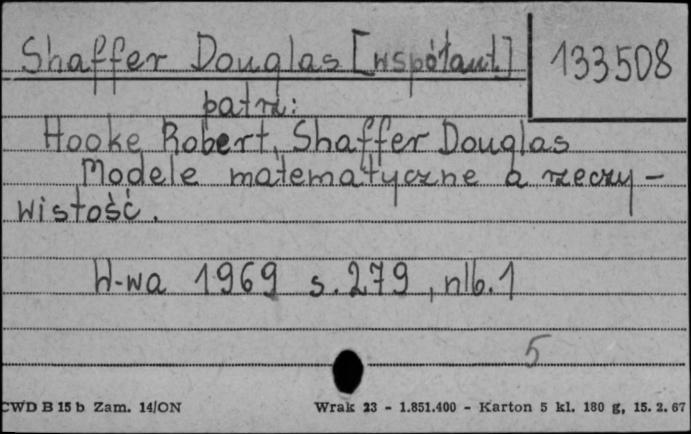 Shaffer Douglas [współaut.]
133508
patrz:
Hooke Robert, Shaffer Douglas
Modele matematyczne a rzeczy-
wistość.
W-wa 1969 s. 279, nlb. 1
5
CWD B 15 b Zam. 14/ON
Wrak 23 - 1.851.400 - Karton 5 kl. 180 g, 15. 2. 67